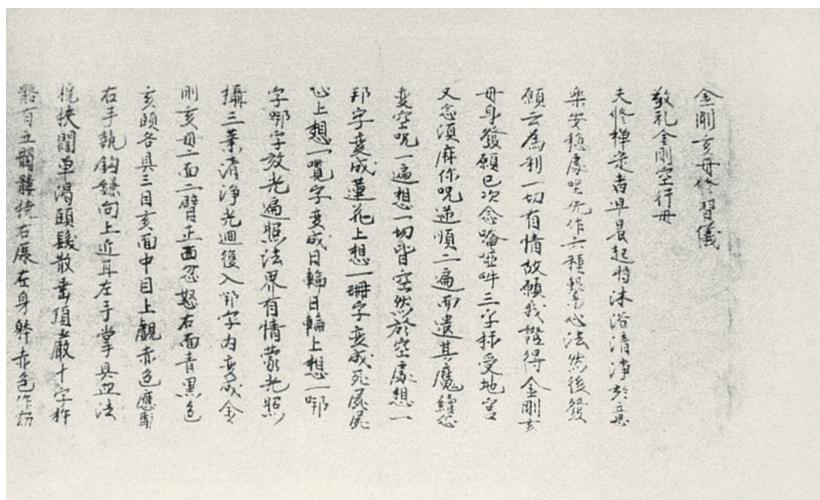 金剛亥母修習儀
敬礼金剛空行母
夫修禅定者早晨起時沐浴清浄於意
樂安穩處坐先作六種心法然後發
願云為利一切有情故願我證得金剛亥
母身發願已次念唵啞吽三字攝受地宫
又念須麻你呪逆順二遍而遣其魔
變空呪一遍想一切皆空然於空處想一
字變成蓮花上想一字變成死屍屍
心上想一字變成日輪日輪上想一
字字放光遍照法界有情蒙光照
攝三業清浄光迴復入字内變成金
剛亥母一面二臂正面忿怒右面青黑色
亥頭各具三目亥面中目上觀赤色
右手執鈎鐮向上近耳左手掌具血法
挾單頭髮散垂頂嚴十字杵
百五髑髏右展左身赤色作